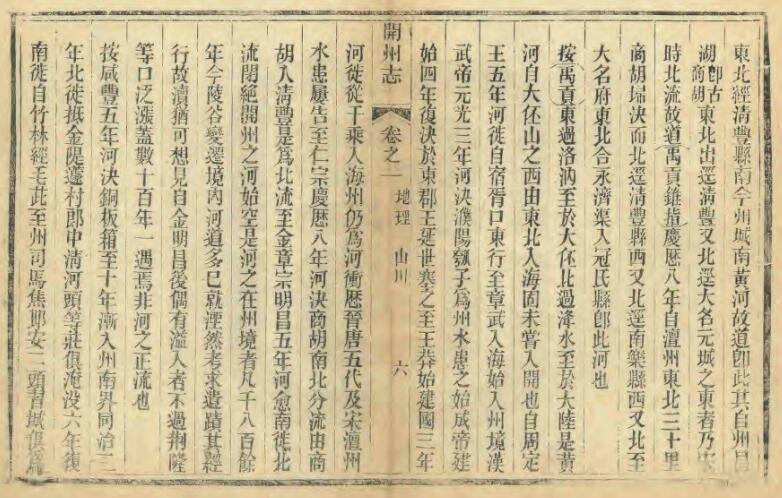 東北經清豐縣南今州城南黃河故道卽此其自州昌
湖卽古商胡東北出逕清豐又北逕大名元城之東者乃宋
時北流故道禹貢錐指慶歷八年自澶州東北二十里
商胡埽決而北逕清豐縣西又北逕南樂縣西又北至
大名府東北合永濟渠入冠氏縣卽此河也
按禹貢東過洛汭至於大伾北過洚水至於大陸是黃
河自大伾山之西由東北入海固未嘗入開也自周定
王五年河徙自宿胥口東行至章武入海始入州境漢
武帝元光三年河決濮陽瓠子爲州水患之始成帝建
始四年復決於東郡王延世塞之至王莽始建國三年
開州志
卷之一
地理
山川
六
河徙從千乘入海州仍爲河衝歷晉唐五代及宋澶州
水患屢告至仁宗慶歷八年河決商胡南北分流由商
胡入清豐是爲北流至金章宗明昌五年河愈南徙北
流閉絕開州之河始空是河之在州境者凡千八百餘
年今陵谷變遷境內河道多已就湮然考求遺蹟其經
行故瀆猶可想見自金明昌後偶有溢入者不過荆隆
等口泛漲蓋數十百年一遇焉非河之正流也
按咸豐五年河決銅板箱至十年漸入州南界同治二
年北徙抵金隄灘村郎中清河頭等莊俱淹没六年復
南徙自竹林經毛茈至州司馬焦邱安二頭習城俱